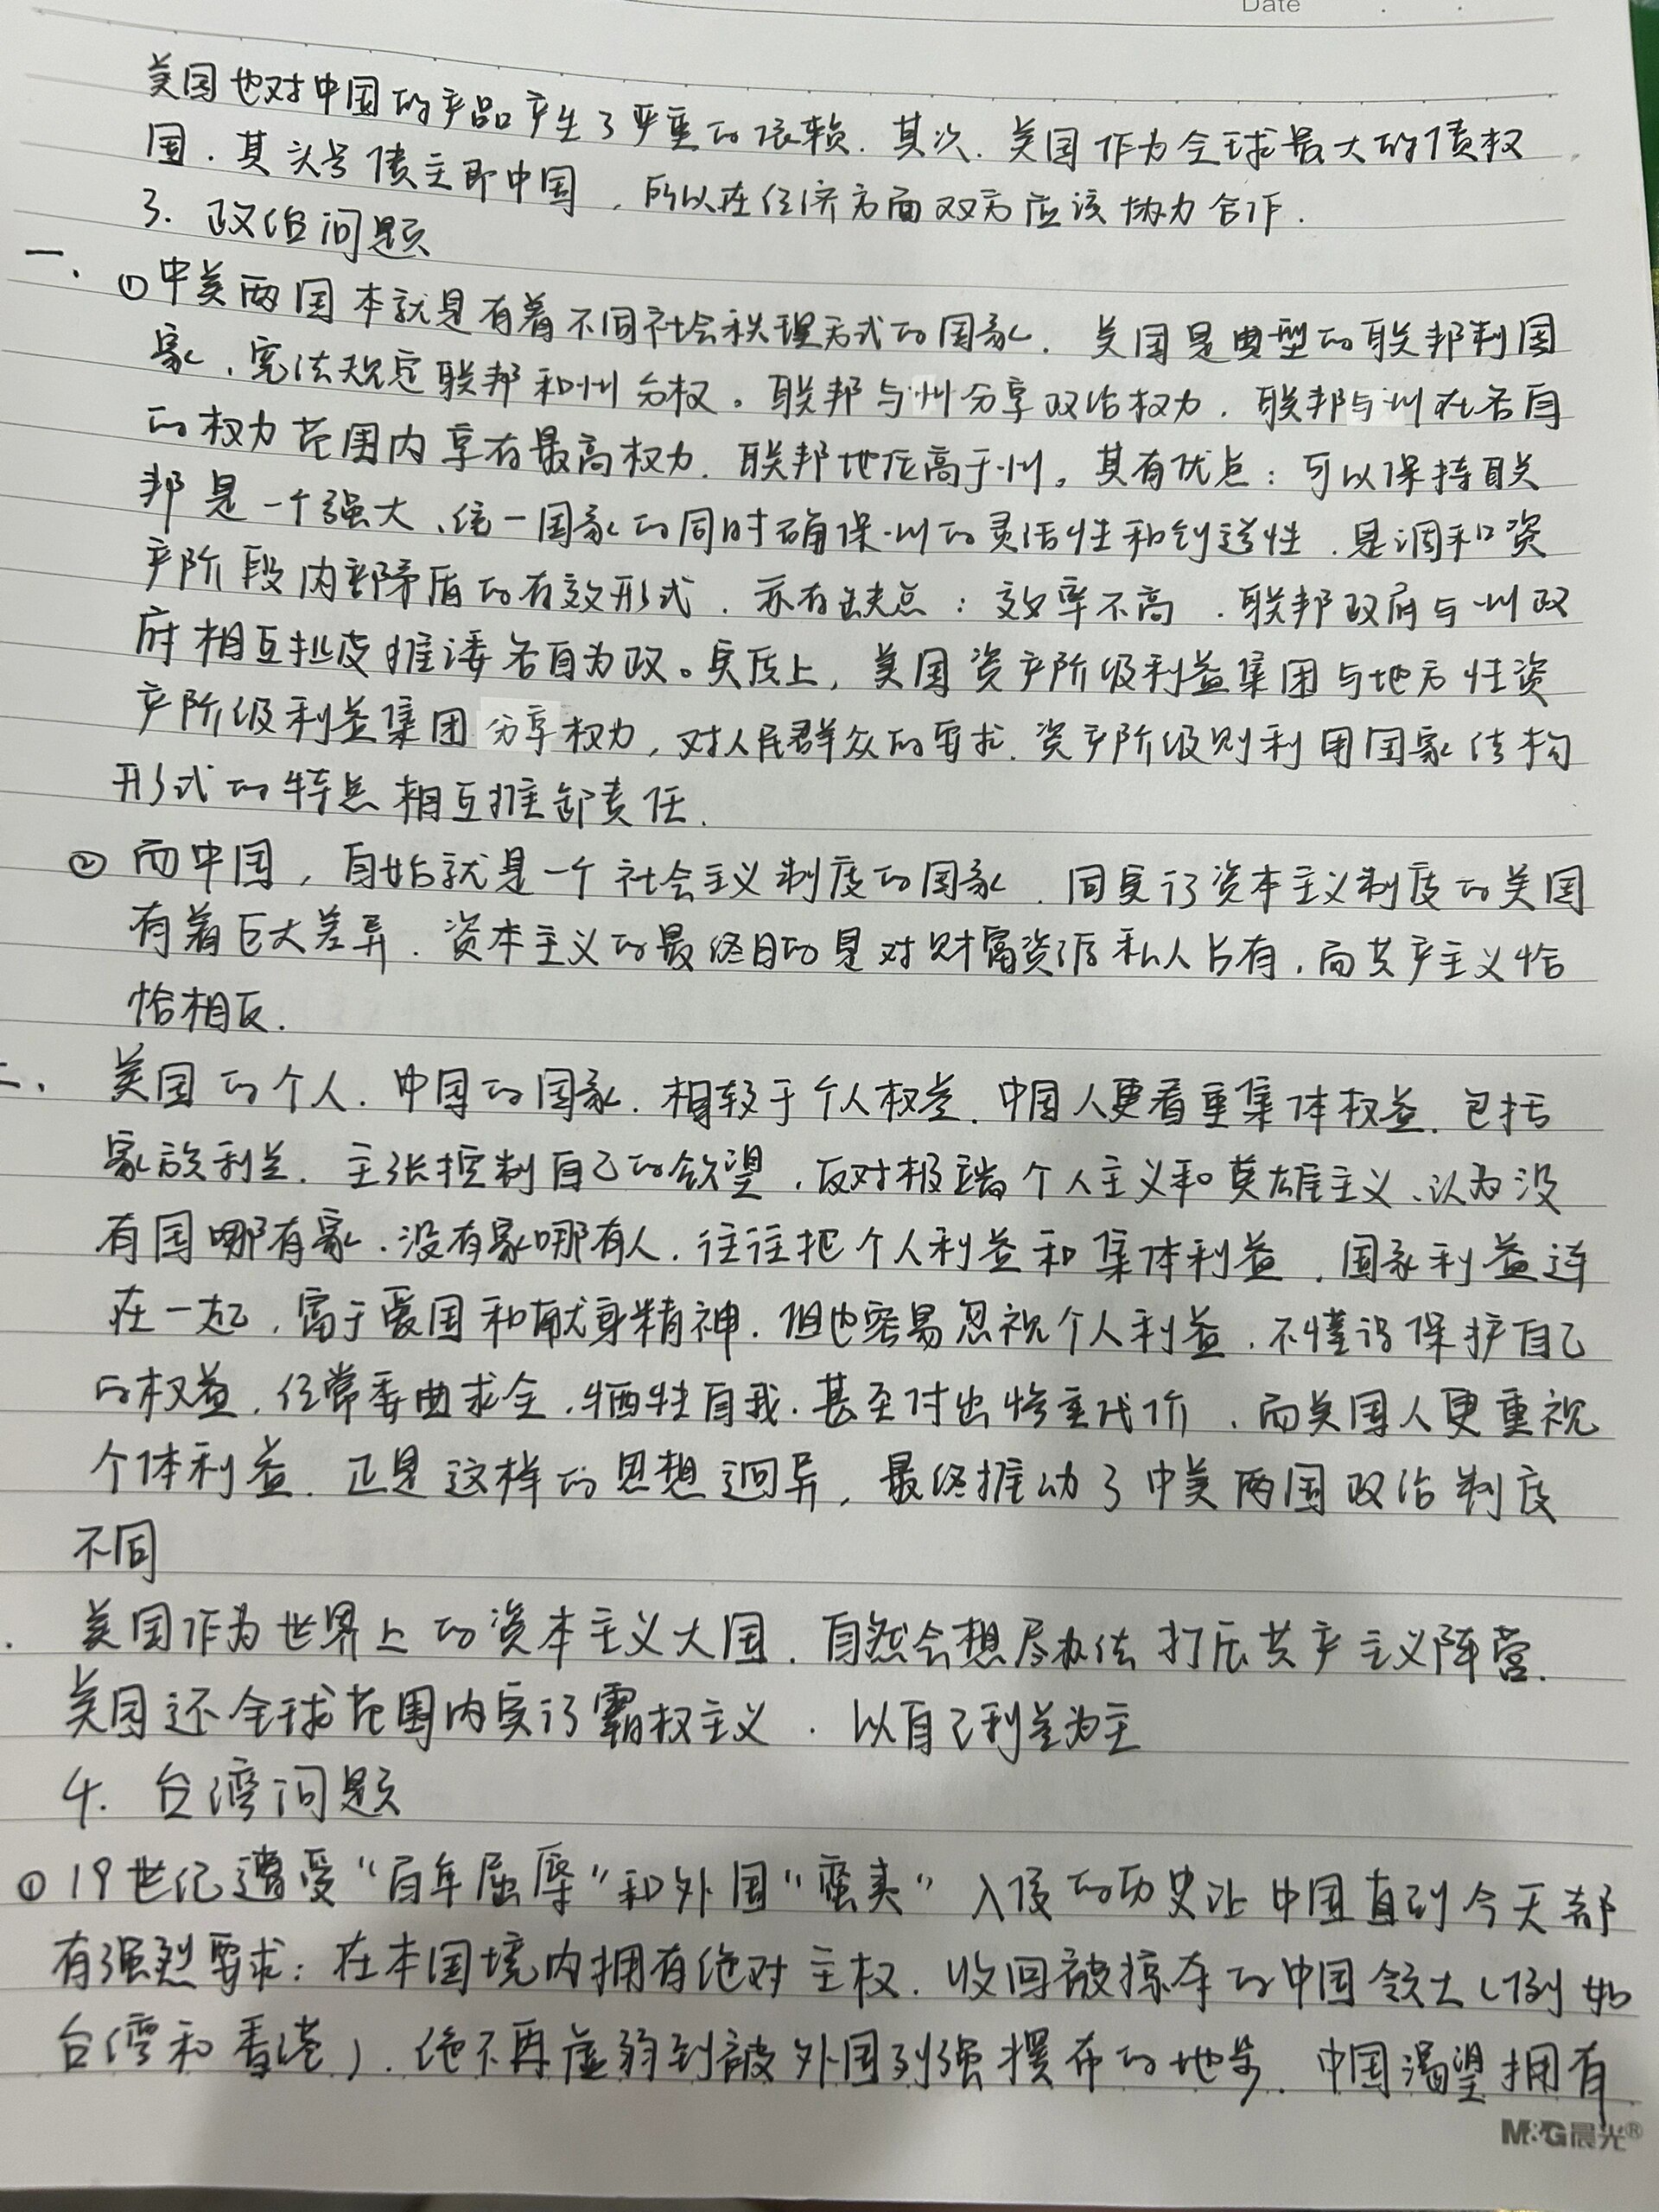 Date
美国也对中国的产品产生了严重的依赖.其次.美国作为全球最大的债权
国.其头号债主即中国,所以在经济方面双方应该协力合作.
3.政治问题
一.①中美两国本就是有着不同社会秩理方式的国家.美国是典型的联邦制国
家,宪法规定联邦和州分权。联邦与州分享政治权力,联邦与州在各自
的权力范围内享有最高权力.联邦地位高于州。其有优点:可以保持联
邦是一个强大、统一国家的同时确保州的灵活性和创造性.是调和资
产阶段内部矛盾的有效形式.亦有缺点:效率不高.联邦政府与州政
府相互扯皮推诿各自为政。实质上,美国资产阶级利益集团与地方性资
产阶级利益集团分享权力,对人民群众的要求.资产阶级则利用国家结构
形式的特点相互推卸责任.
②而中国,自始就是一个社会主义制度的国家.同实行资本主义制度的美国
有着巨大差异.资本主义的最终目的是对财富资源私人占有,而共产主义恰
恰相反.
二、美国的个人.中国的国家.相较于个人权益.中国人更看重集体权益.包括
家族利益.主张控制自己的欲望,反对极端个人主义和英雄主义、认为没
有国哪有家.没有家哪有人.往往把个人利益和集体利益,国家利益连
在一起,富于爱国和献身精神.但也容易忽视个人利益.不懂得保护自己
的权益,经常委曲求全,牺牲自我.甚至付出惨重代价,而美国人更重视
个体利益.正是这样的思想迥异,最终推动了中美两国政治制度
不同
.美国作为世界上的资本主义大国.自然会想尽办法打压共产主义阵营.
美国还全球范围内实行霸权主义.以自己利益为主
4.台湾问题
①19世纪遭受“百年屈辱”和外国“蛮夷”入侵的历史让中国直到今天都
有强烈要求:在本国境内拥有绝对主权.收回被掠夺的中国领土(例如
台湾和香港).绝不再虚弱到被外国列强摆布的地步.中国渴望拥有
M&G晨光®